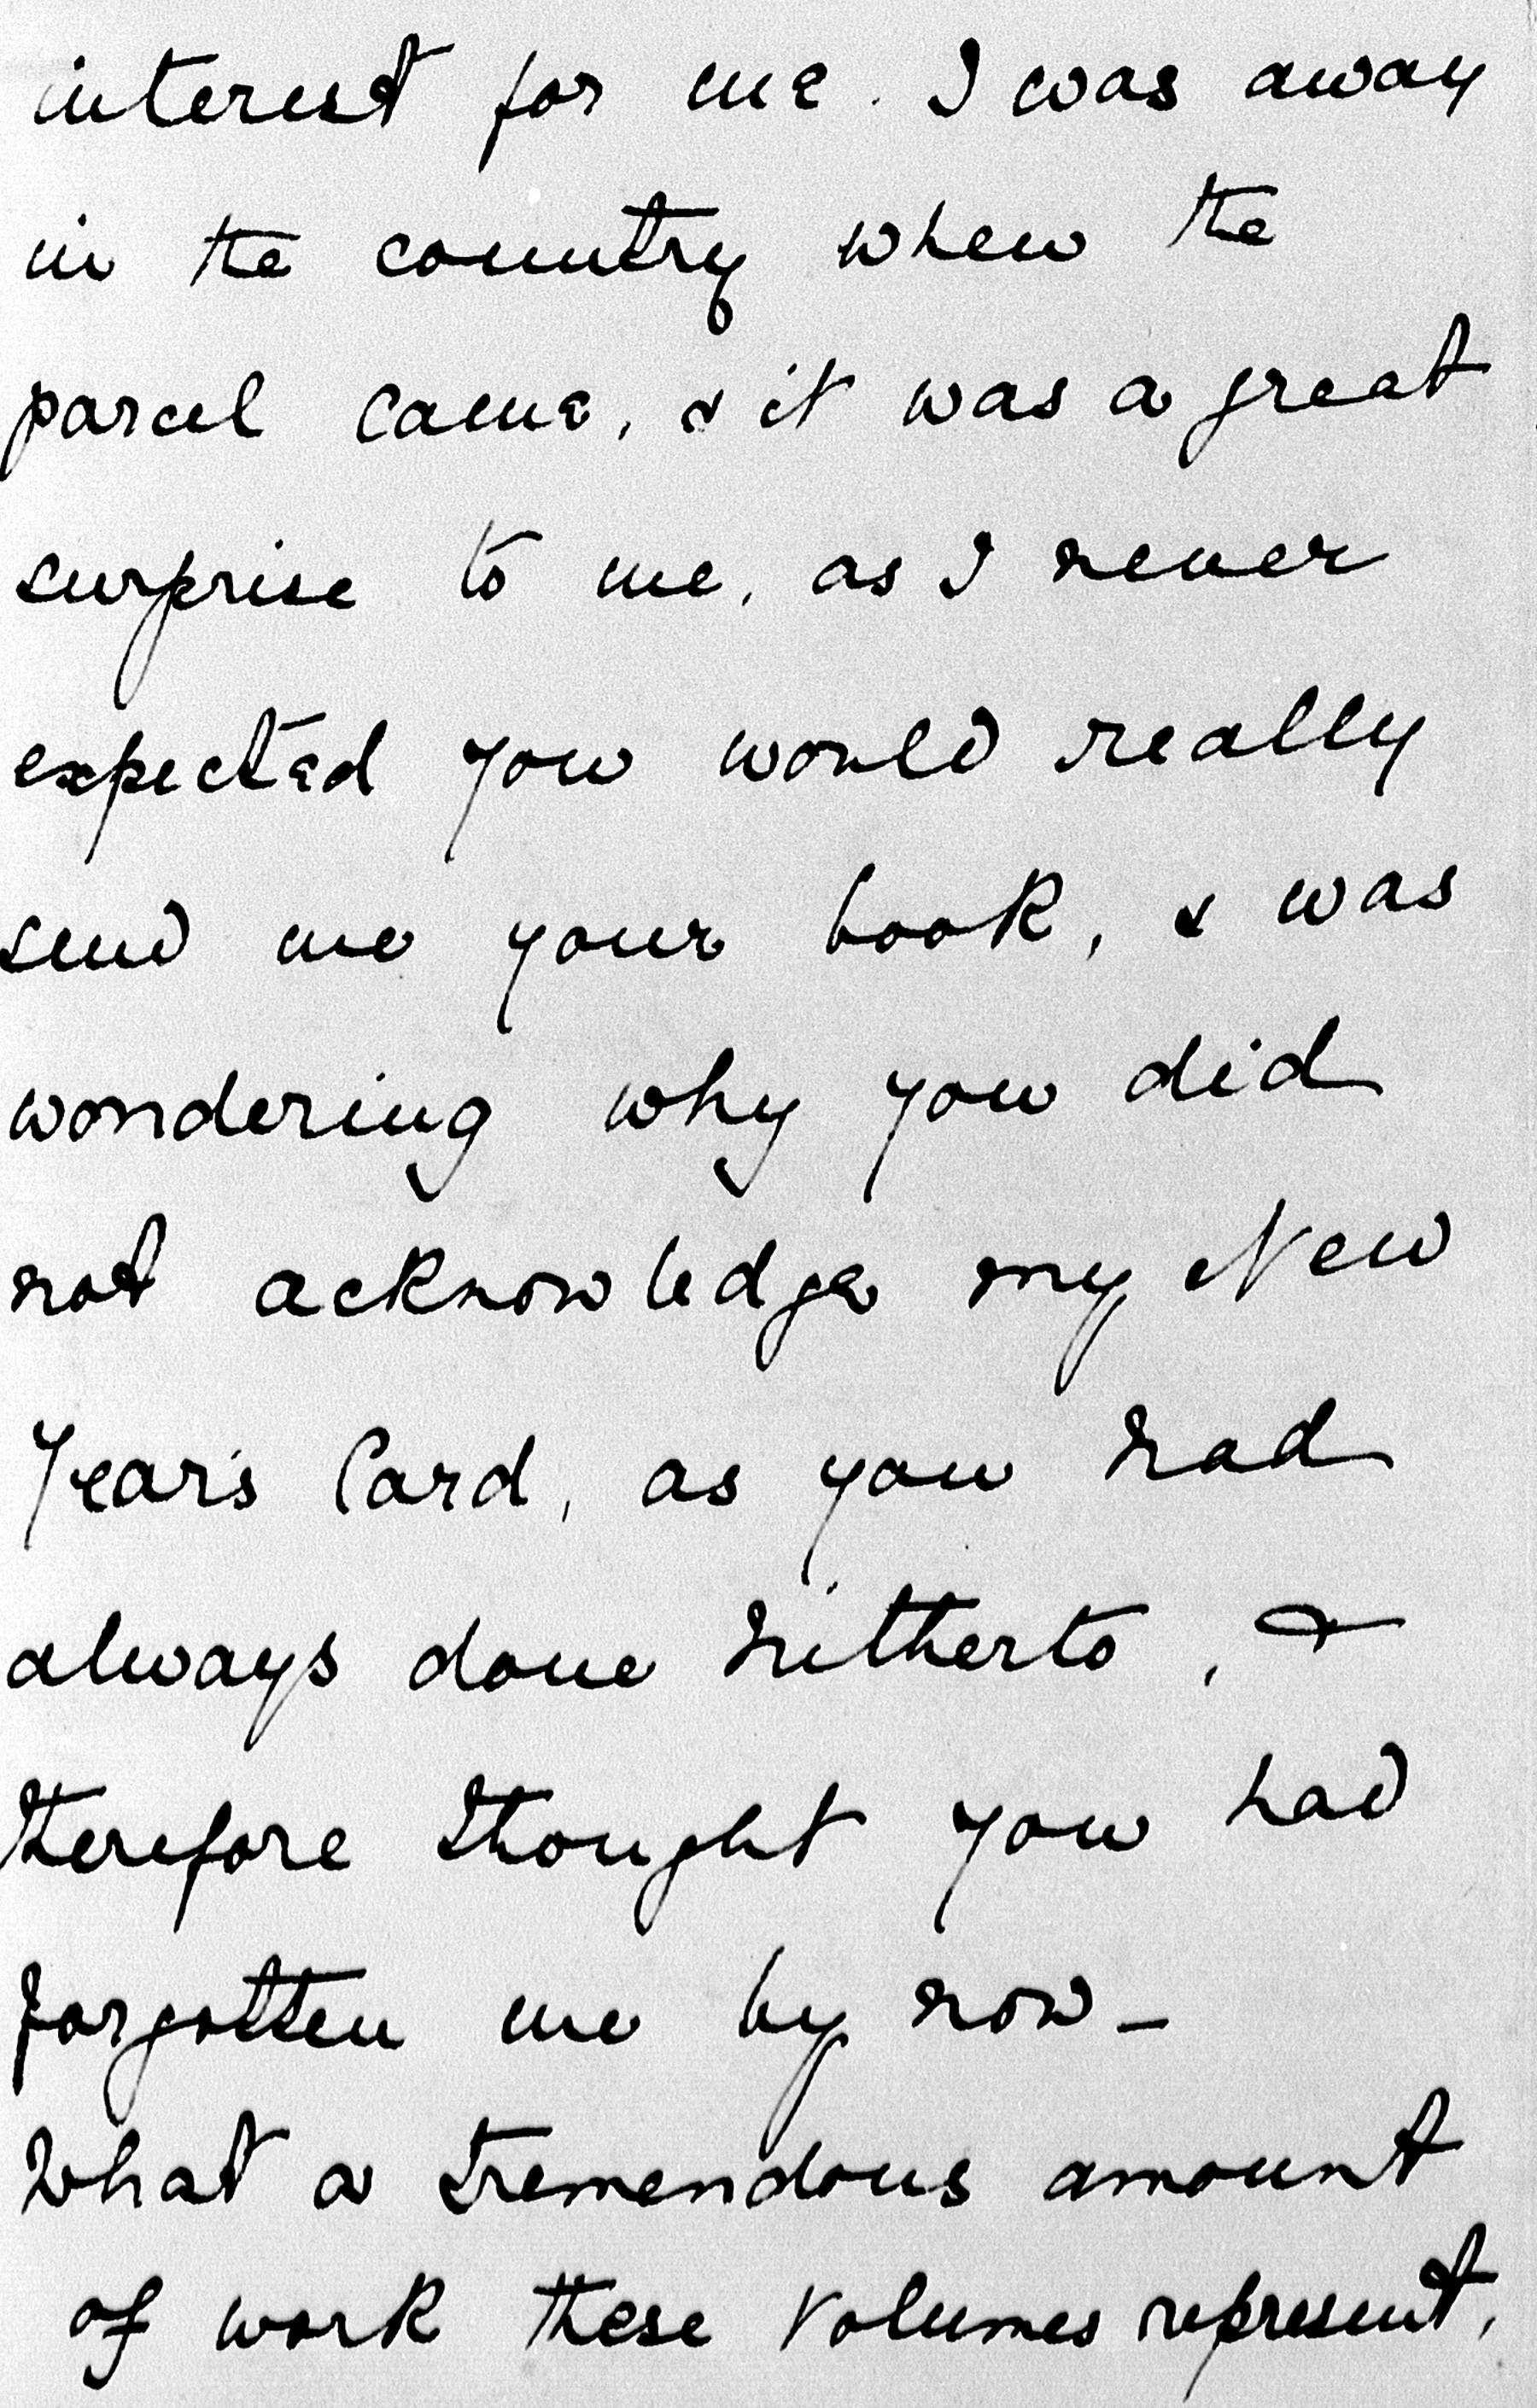 interest for me. I was away
in the country when the
parcel came, & it was a great
surprise to me, as I never
expected you would really
send me your book, & was
wondering why you did
not acknowledge my New
Year's Card, as you had
always done hitherto, &
therefore thought you had
forgotten me by now –
What a tremendous amount
of work these volumes represent,